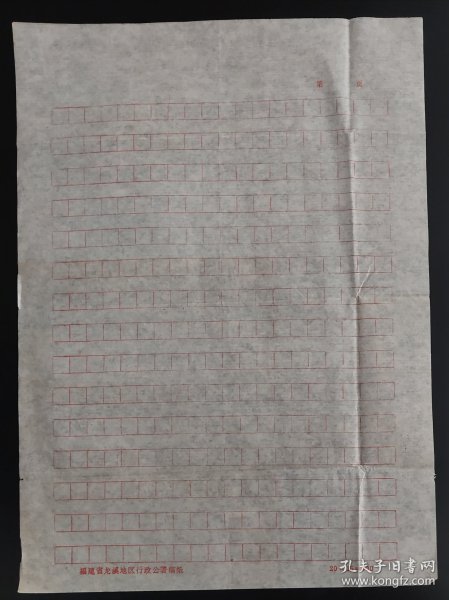 第 页
福建省龙溪地区行政公署稿纸
20
孔夫子旧书网
www.kongfz.com